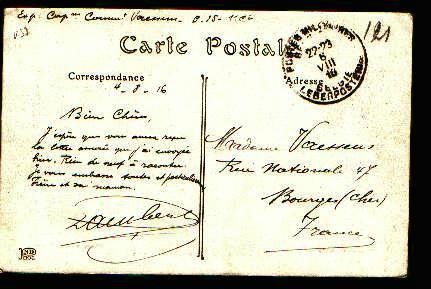 Exp. Cap. Comm. Vaessens D-15-
Carte Postale
POSTES MILITAIRES
22-23
8
VIII
16
BELGIE
LEGERPOSTERIJ
Correspondance
Adresse
4-8-16
Bien Chère,
J'espère que vous aurez reçu
la lettre que j'ai envoyée
hier. Rien de neuf à raconter.
Je vous embrasse toutes et particulièrement
et sa maman.
Lambert
Madame Vaessens
Rue Nationale 47
Bourges (Cher)
France